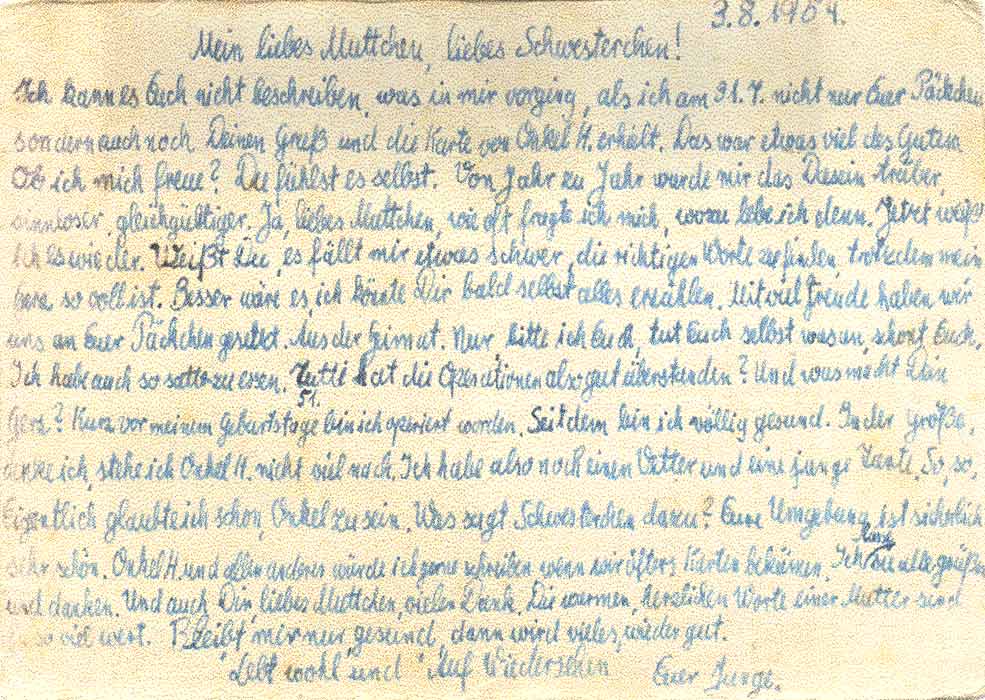 3.8.1954.
Mein liebes Muttchen, liebes Schwesterchen!
Ich kann es Euch nicht beschreiben, was in mir vorging, als ich am 31.7. nicht nur Euer Päckchen
sondern auch noch Deinen Gruß und die Karte von Onkel H. erhielt. Das war etwas viel des Guten.
Ob ich mich freue? Du fühlst es selbst. Von Jahr zu Jahr wurde mir das Dasein trüber,
sinnloser, gleichgültiger. Ja, liebes Muttchen, wie oft fragte ich mich, wozu lebe ich denn. Jetzt weiß
ich es wieder. Weißt Du, es fällt mir etwas schwer, die richtigen Worte zu finden, trotzdem mein
Herz so voll ist. Besser wäre es, ich könnte Dir bald selbst alles erzählen. Mit viel Freude haben wir
uns an Euer Päckchen gesetzt. Aus der Heimat. Nur, bitte ich Euch, tut Euch selbst was an, schont Euch.
Ich habe auch so satt zu essen. Tutti hat die Operationen also gut überstanden? Und was macht Dein
Herz? Kurz vor meinem Geburtstage 51. bin ich operiert worden. Seitdem bin ich völlig gesund. In der Größe,
denke ich, stehe ich Onkel H. nicht viel nach. Ich habe also noch einen Vetter und eine junge Tante. So, so.
Eigentlich glaubte ich schon, Onkel zu sein. Was sagt Schwesterchen dazu? Eure Umgebung ist sicherlich
sehr schön. Onkel H. und allen anderen würde ich gerne schreiben wenn wir öfters Karten bekämen. Ich lasse sie alle grüßen
und danken. Und auch Dir, liebes Muttchen, vielen Dank. Die warmen, herzlichen Worte einer Mutter sind
so viel wert. Bleibt mir nur gesund, dann wird vieles wieder gut.
Lebt wohl und Auf Wiedersehen Euer Junge.